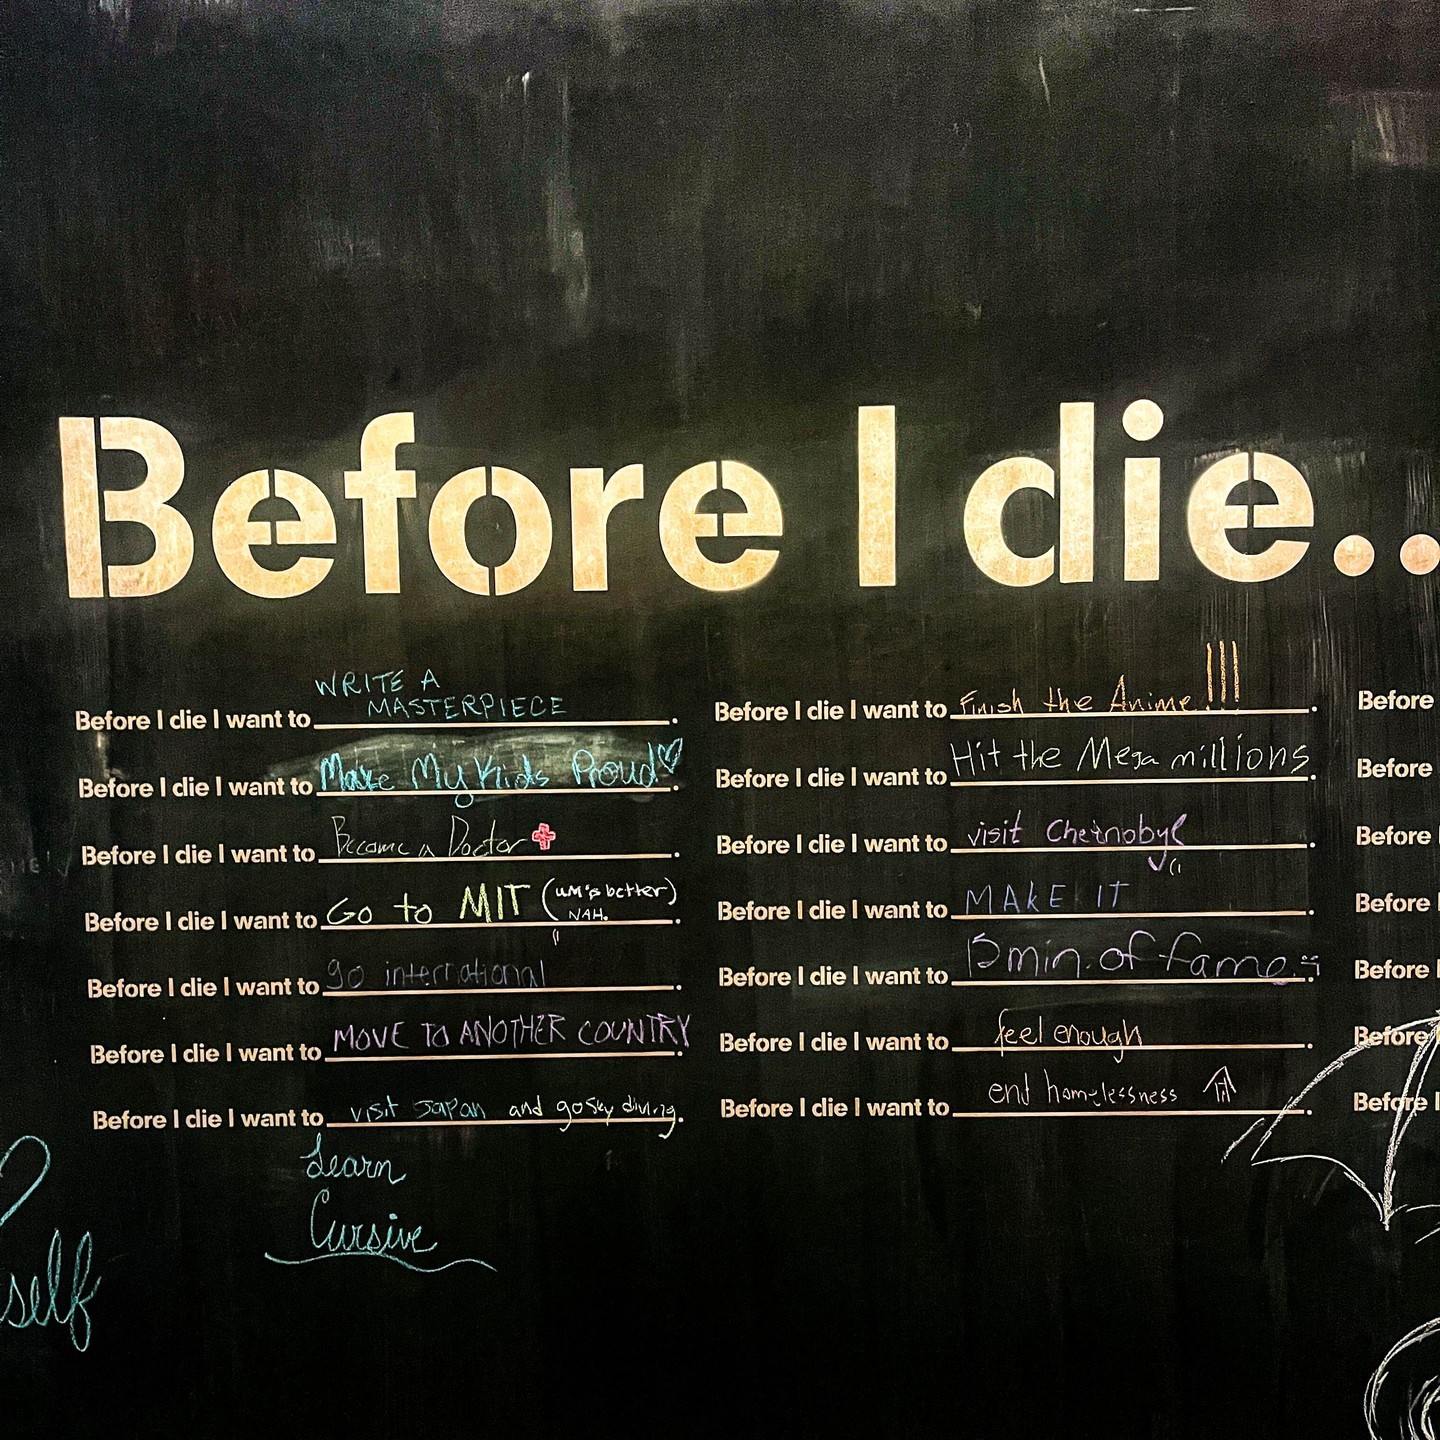 Before I die...
WRITE A
Before I die I want to MASTERPIECE.
Before I die I want to Make My Kids Proud.
Before I die I want to Become a Doctor.
Before I die I want to Go to MIT (UM's better)
NAH.
Before I die I want to go international.
Before I die I want to MOVE TO ANOTHER COUNTRY.
Before I die I want to visit Japan and go sky diving.
Learn
Cursive
self
Before I die I want to Finish the Anime!!!.
Before I die I want to Hit the Mega millions.
Before I die I want to visit Chernobyl.
Before I die I want to MAKE IT.
Before I die I want to 15 min. of fame.
Before I die I want to feel enough.
Before I die I want to end homelessness.
Before
Before
Before I
Before I
Before I
Before
Before I